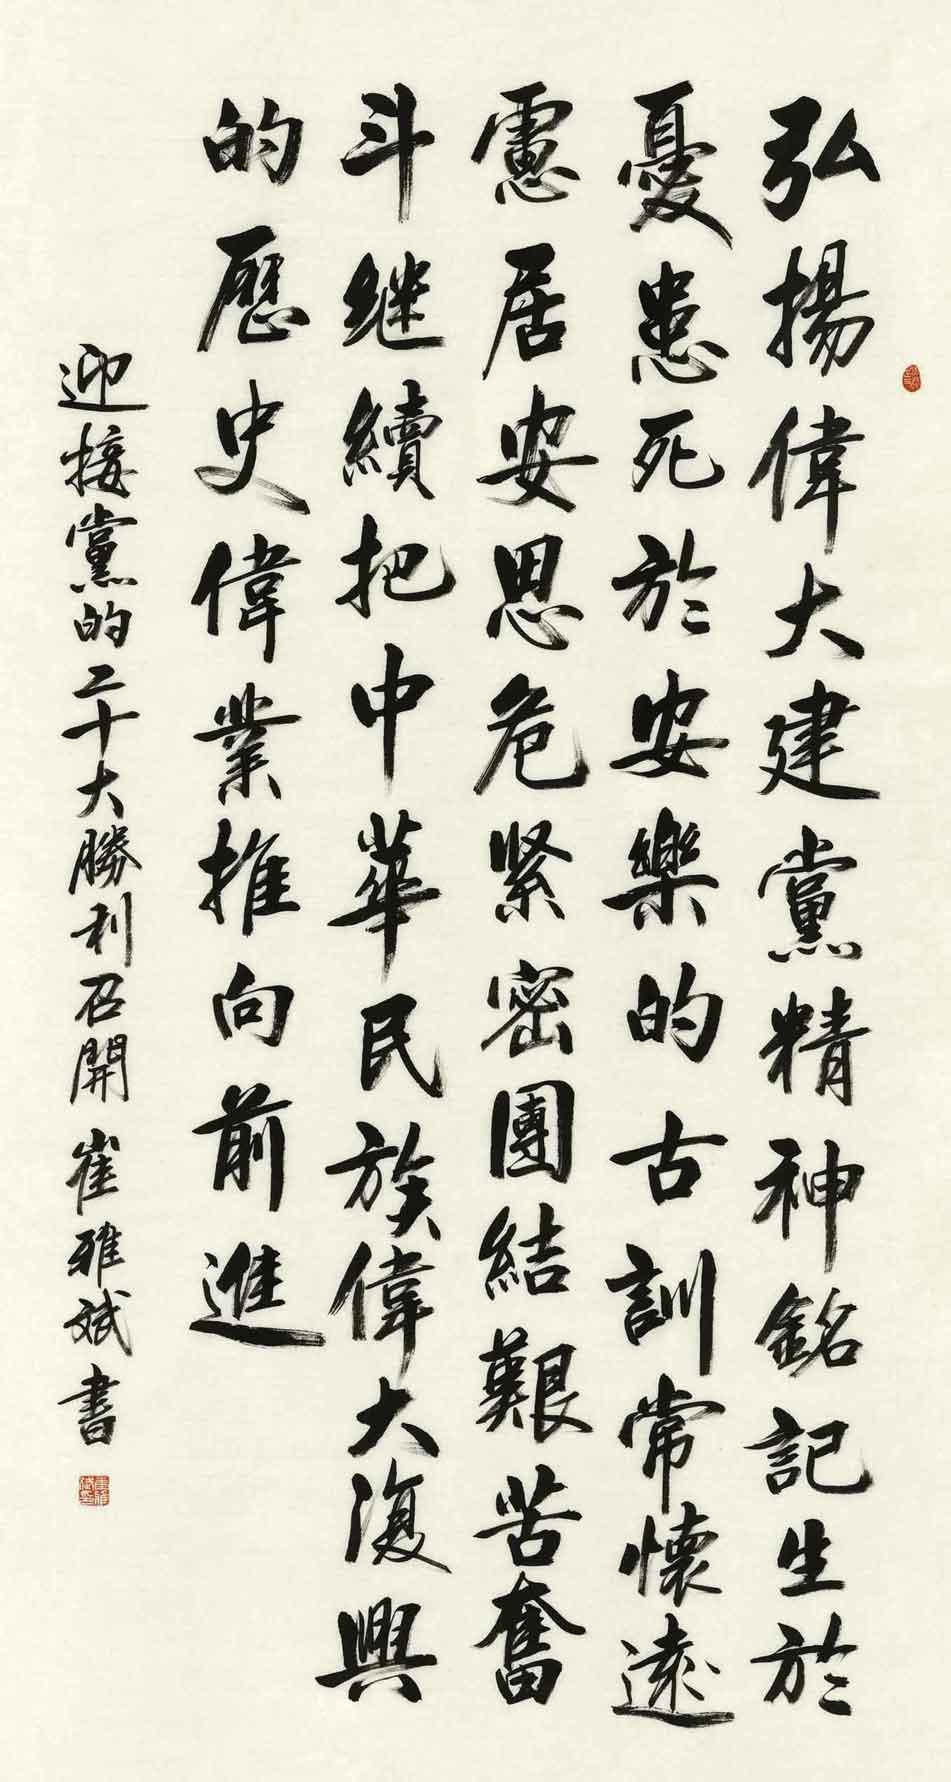 弘揚偉大建黨精神銘記生於
憂患死於安樂的古訓常懷遠
慮居安思危緊密團結艱苦奮
斗继續把中華民族偉大復興
的歷史偉業推向前進
迎接黨的二十大勝利召開 崔雅斌書